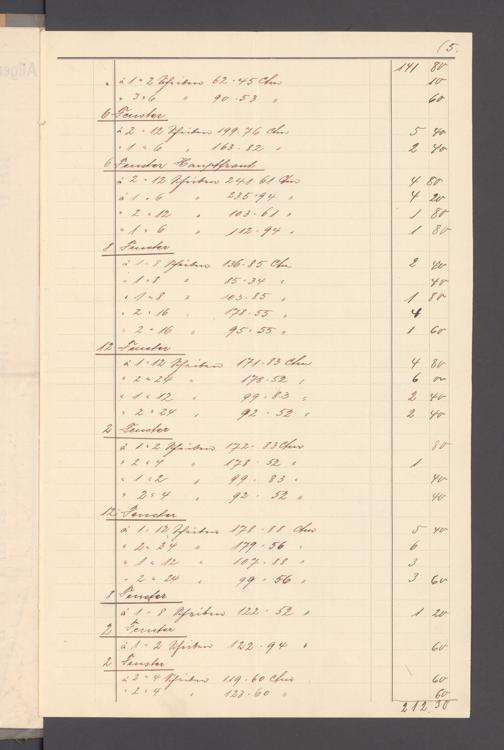 (5.
141 80
" à 1 = 2 Scheiben 62·45 Ctm 10
" 3 = 6 " 90·53 " 60
6 Fenster
à 2 = 12 Scheiben 199·76 Ctm 5 40
" 1 = 6 " 163·82 " 2 40
6 Fenster Hauptfront
à 2 = 12 Scheiben 241·61 Ctm 4 80
à 1 = 6 " 235·94 " 4 20
" 2 = 12 " 103·61 " 1 80
" 1 = 6 " 112·94 " 1 80
8 Fenster
à 1 = 8 Scheiben 136·85 Ctm 2 40
" 1 = 8 " 85·34 " 40
" 1 = 8 " 103·85 " 1 80
" 2 = 16 " 178·55 " 4
" 2 = 16 " 95·55 " 1 60
12 Fenster
à 1 = 12 Scheiben 171·83 Ctm 4 80
" 2 = 24 " 178·52 " 6 00
" 1 = 12 " 99·83 " 2 40
" 2 = 24 " 92·52 " 2 40
2 Fenster
à 1 = 2 Scheiben 172·83 Ctm 80
" 2 = 4 " 178·52 " 1
" 1 = 2 " 99·83 " 40
" 2 = 4 " 92·52 " 40
12 Fenster
à 1 = 12 Scheiben 178·88 Ctm 5 40
" 2 = 24 " 179·56 " 6
" 1 = 12 " 107·88 " 3
" 2 = 24 " 99·56 " 3 60
8 Fenster
à 1 = 8 Scheiben 122·52 " 1 20
2 Fenster
à 1 = 2 Scheiben 122·94 " 60
2 Fenster
à 2 = 4 Scheiben 119·60 Ctm 60
" 2 = 4 " 123·60 " 60
212 30